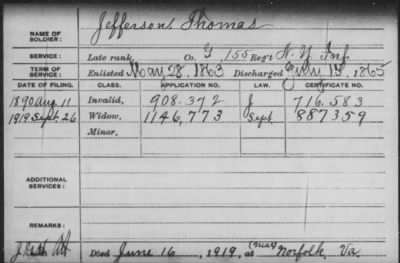 Jefferson Thomas
NAME OF SOLDIER:
SERVICE: Late rank, Co. G, 155 Reg't N.Y. Inf.
TERM OF SERVICE: Enlisted May 28, 1863 Discharged July 15, 1865
DATE OF FILING. CLASS. APPLICATION NO. LAW. CERTIFICATE NO.
1890 Aug 11 Invalid, 908.372 J 716.583
1919 Sept 26 Widow, 1146,773 Sept. 887359
Minor,
ADDITIONAL SERVICES:
REMARKS:
Died June 16, 1919, at (near) Norfolk, Va.